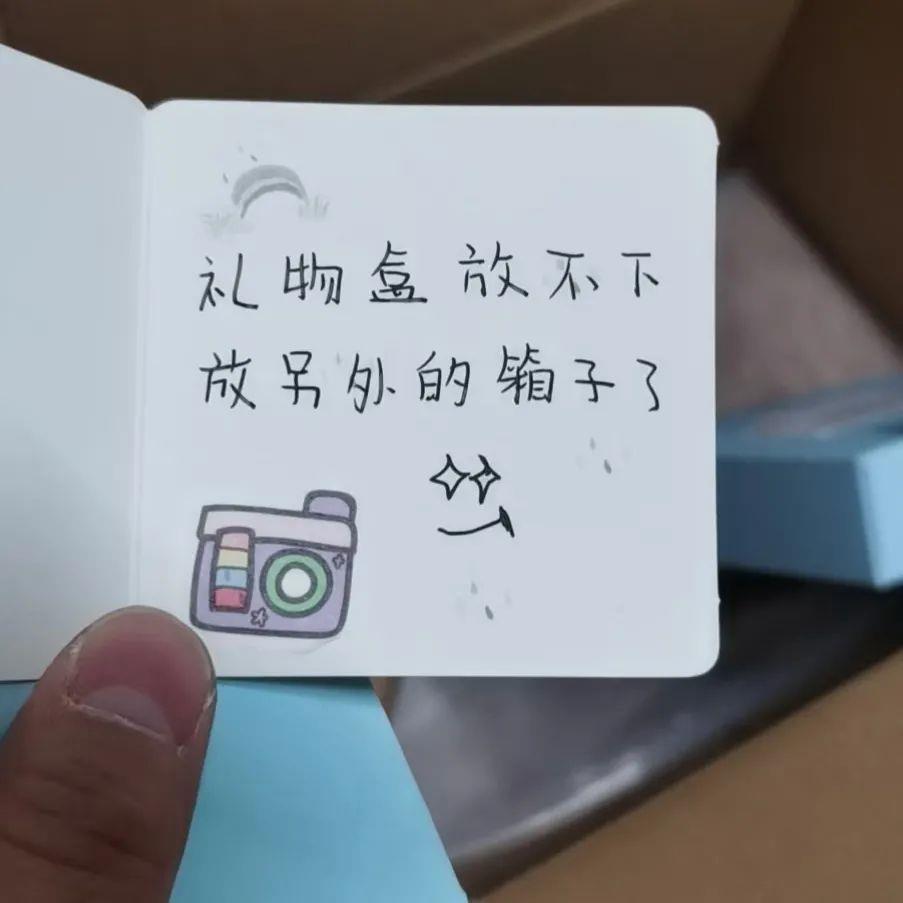 礼物盒放不下
放另外的箱子了